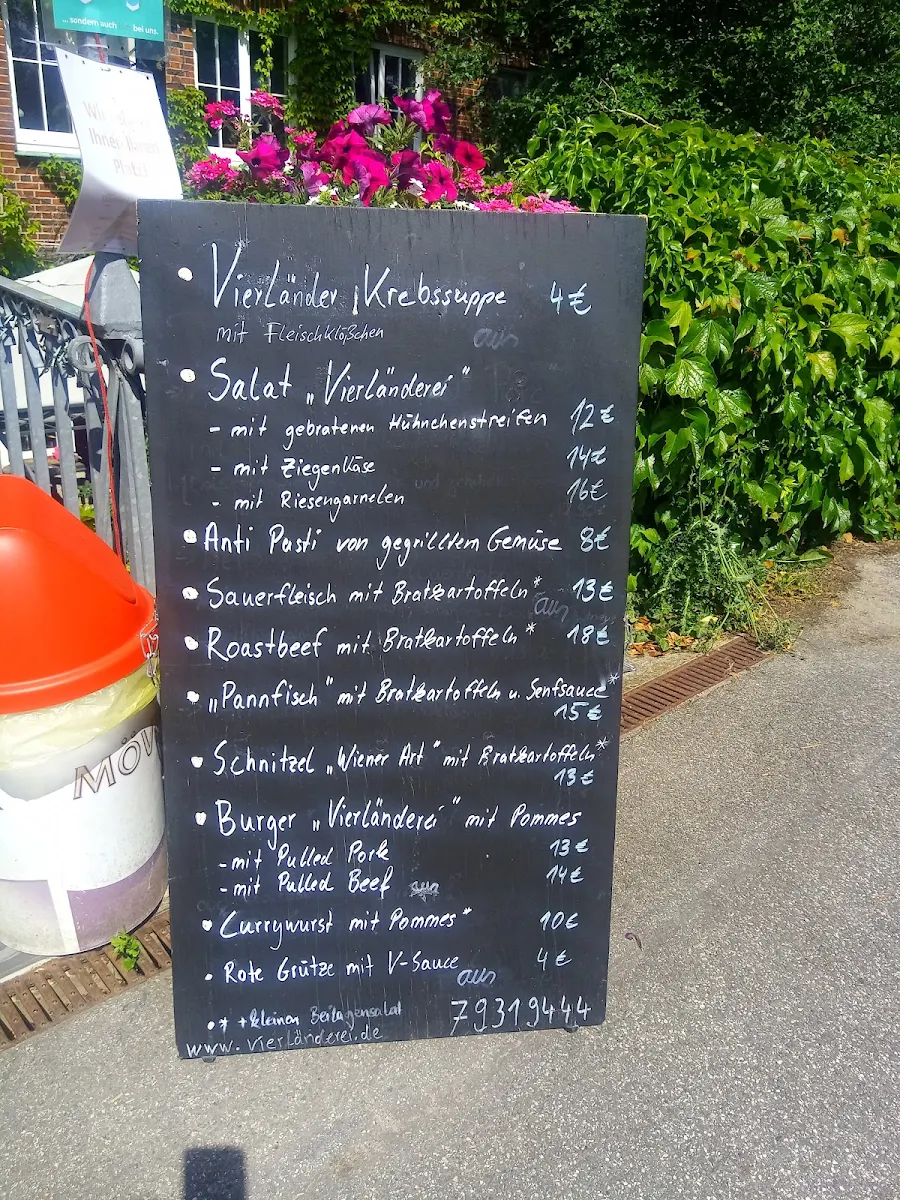 ...sondern auch bei uns.
Ihnen Ihren
Platz!
• Vierländer Krebssuppe 4€
mit Fleischklößchen
• Salat „Vierländerei"
- mit gebratenen Hühnchenstreifen 12€
- mit Ziegenkäse 14€
- mit Riesengarnelen 16€
• Anti Pasti von gegrilltem Gemüse 8€
• Sauerfleisch mit Bratkartoffeln* 13€
• Roastbeef mit Bratkartoffeln* 18€
• „Pannfisch" mit Bratkartoffeln u. Senfsauce*
15€
• Schnitzel „Wiener Art" mit Bratkartoffeln*
13€
• Burger „Vierländerei" mit Pommes
- mit Pulled Pork 13€
- mit Pulled Beef 14€
• Currywurst mit Pommes* 10€
• Rote Grütze mit V-Sauce 4€
aus
• * + kleinen Beilagensalat 79319444
www.vierländerei.de
MÖV